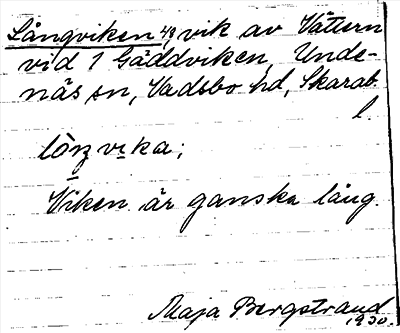 Långviken 49, vik av Vättern
vid 1 Gäddviken, Unde-
näs sn, Vadsbo hd, Skarab.
l.
lòŋvika;
Viken är ganska lång.
Maja Bergstrand
1930.